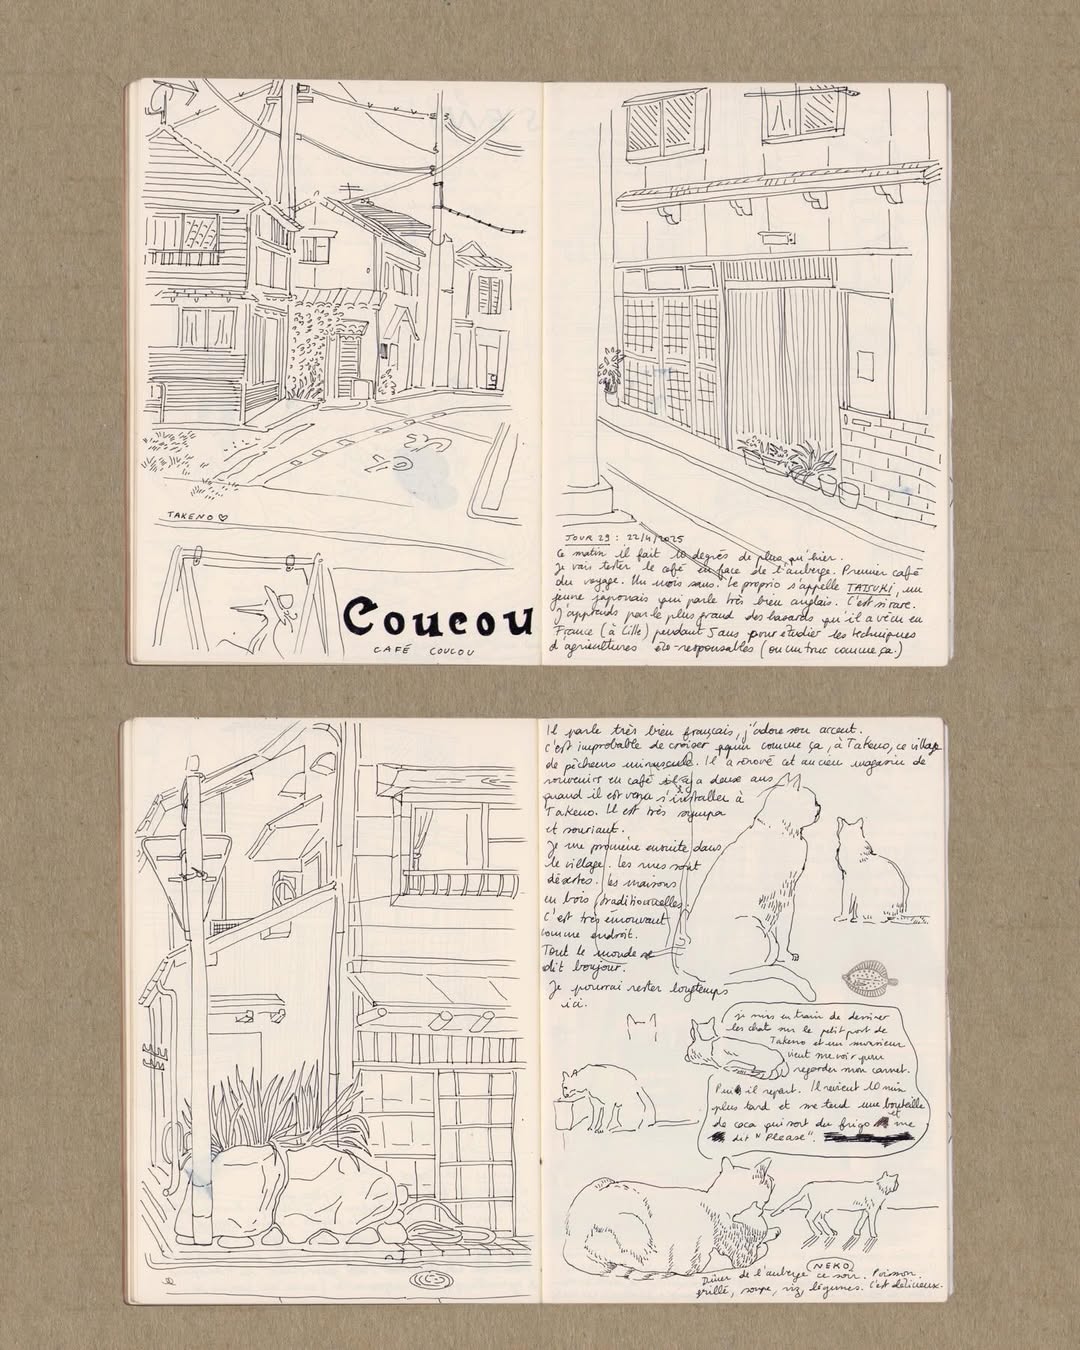 TAKENO ♡
Coucou
CAFÉ COUCOU
JOUR 29 : 22/4/2025
Ce matin il fait 10 degrés de plus qu'hier.
Je vais tester le café en face de l'auberge. Premier café
du voyage. Un mois sans. Le proprio s'appelle TATSUKI, un
jeune japonais qui parle très bien anglais. C'est si rare.
J'apprends par le plus grand des hasards qu'il a vécu en
France (à Lille) pendant 5 ans pour étudier les techniques
d'agricultures éco-responsables (ou un truc comme ça.)
Il parle très bien français, j'adore son accent.
C'est improbable de croiser comme ça, à Takeno, ce village
de pêcheurs minuscule. Il a rénové cet ancien magasin de
souvenirs en café il y a deux ans
quand il est venu s'installer à
Takeno. Il est très sympa
et souriant.
Je me promène ensuite dans
le village. Les rues sont
désertes. Les maisons
en bois traditionnelles.
C'est très émouvant
comme endroit.
Tout le monde se
dit bonjour.
Je pourrai rester longtemps
ici.
je suis en train de dessiner
les chat sur le petit port de
Takeno et un monsieur
vient me voir pour
regarder mon carnet.
Puis il repart. Il revient 10 min
plus tard et me tend une bouteille
de coca qui sort du frigo et me
dit "Please".
NEKO
Dîner de l'auberge ce soir. Poisson
grillé, soupe, riz, légumes. C'est délicieux.